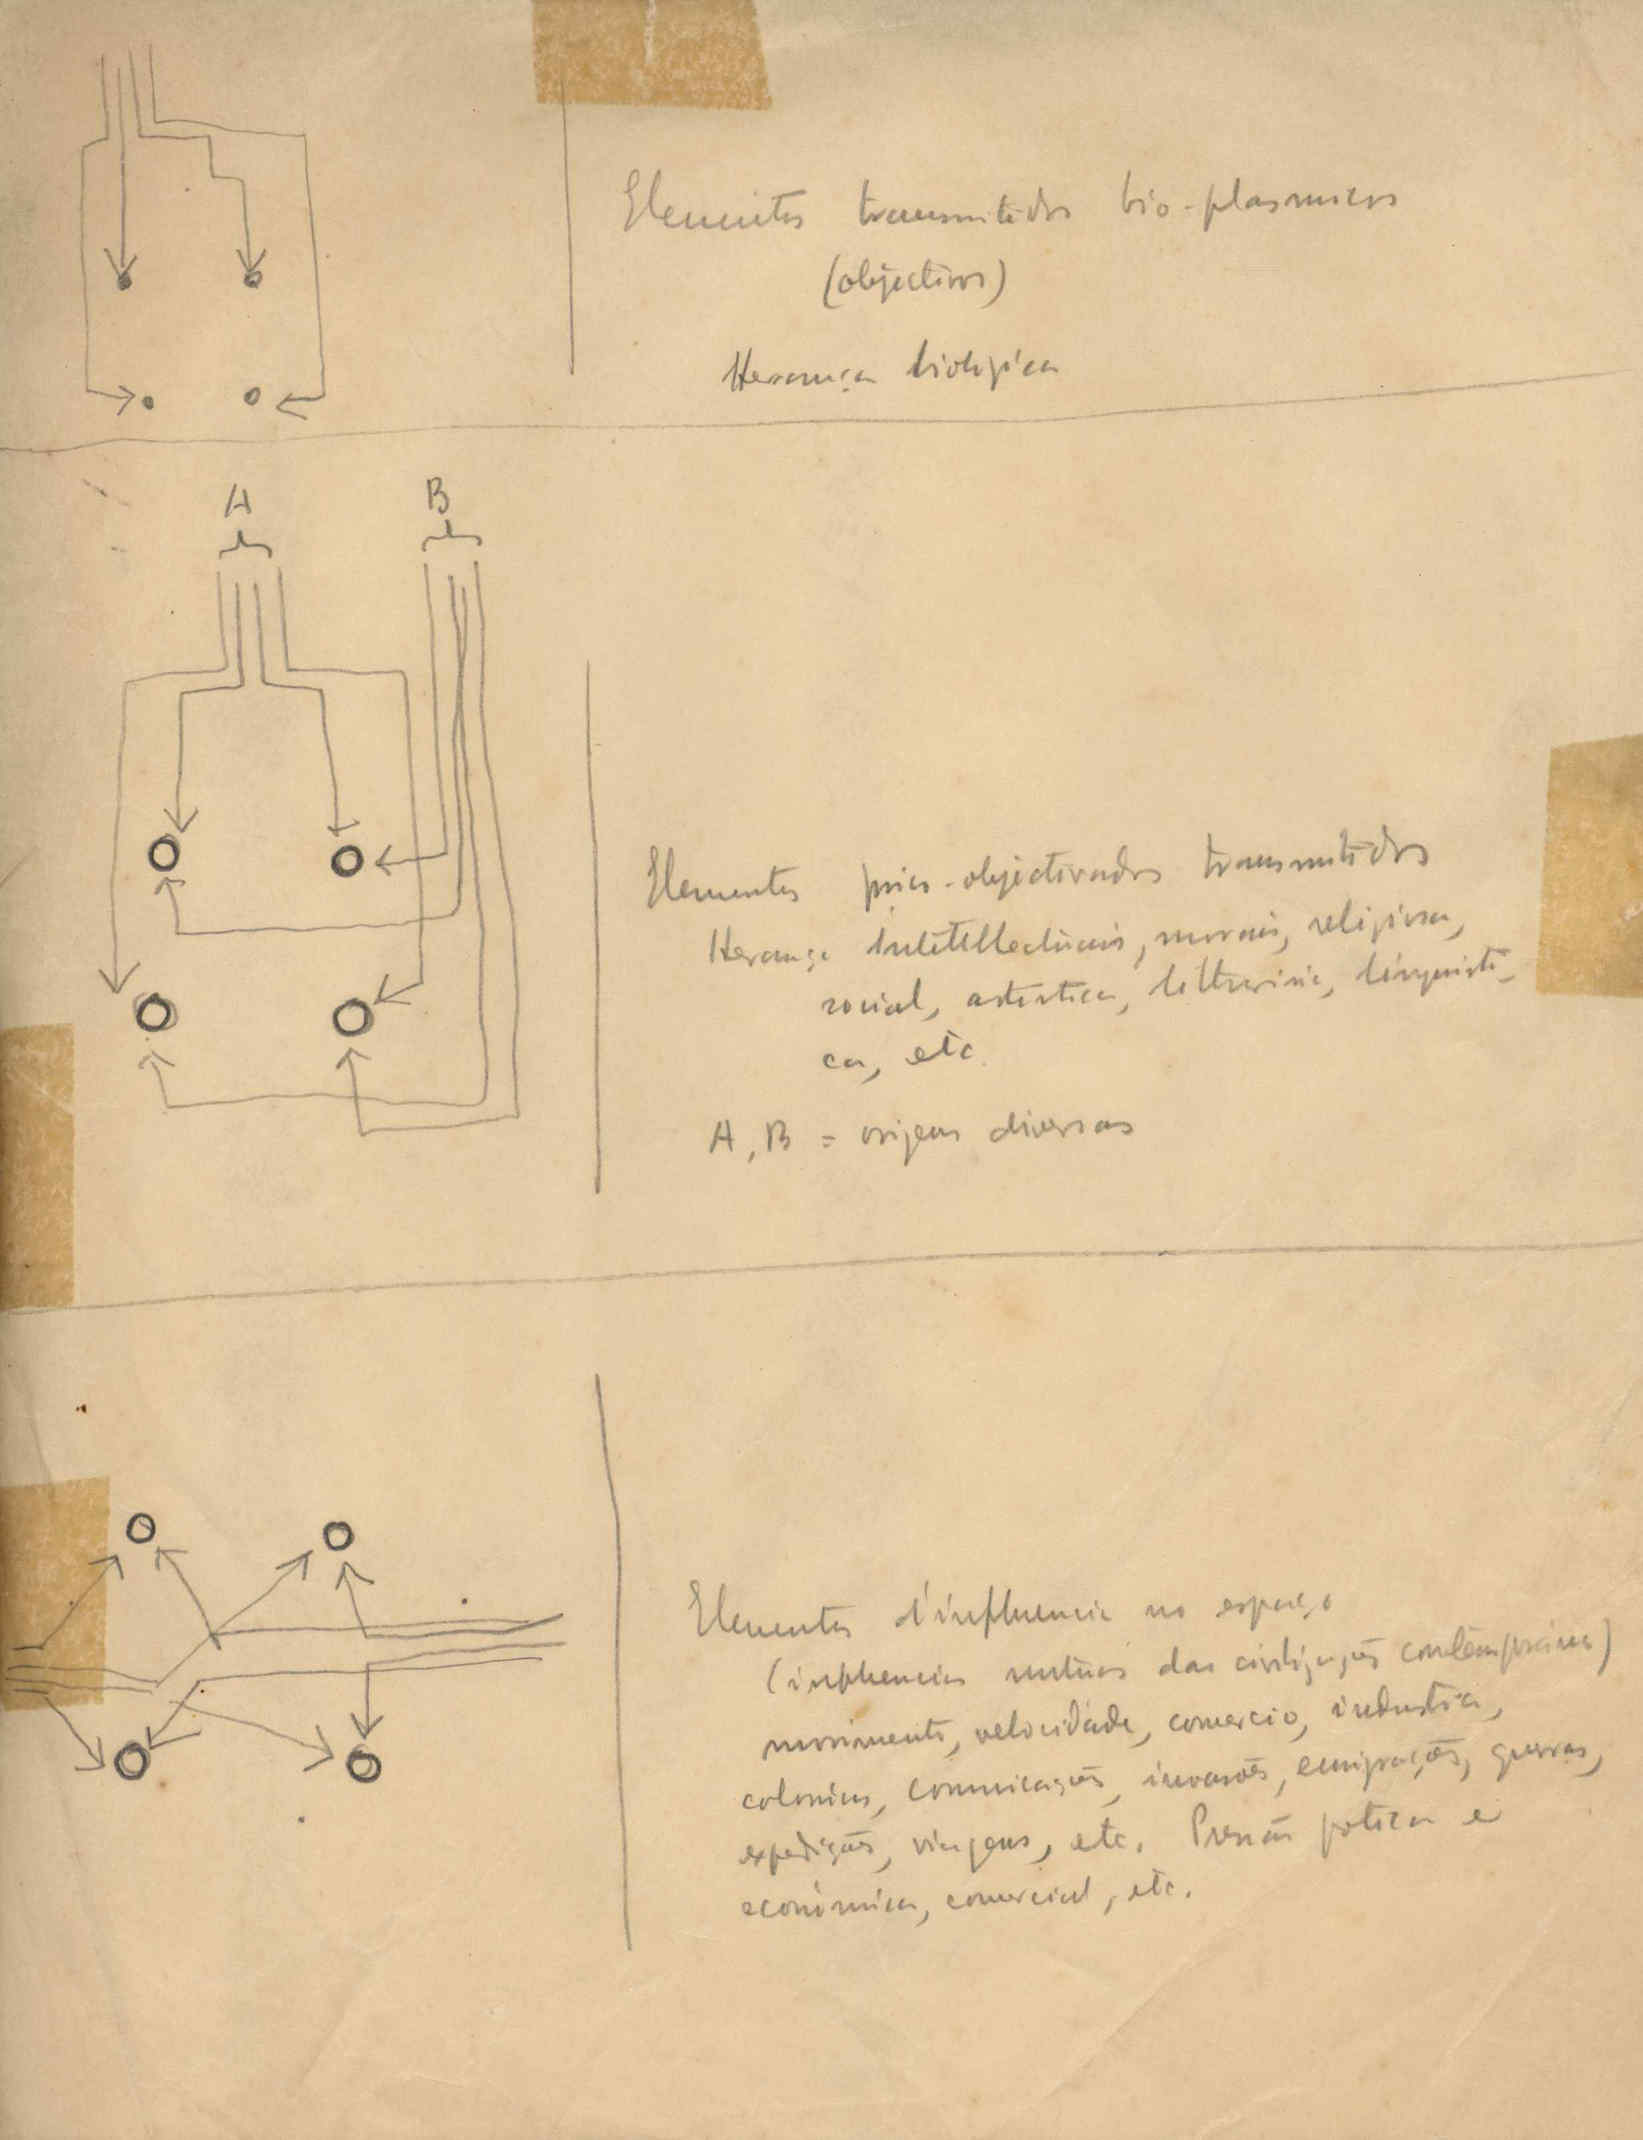 Elementos transmitidos bio-plasmicos
(objectivos)
Herança biologica
A B
Elementos psico-objectivados transmitidos
Herança intetellectuais, morais, religiosa,
social, artistica, litteraria, linguisti-
ca, etc.
A, B = origens diversas
Elementos d'influencia no espaço
(influencias mutuas das civilizações contemporaneas)
movimento, velocidade, comercio, industria,
colonias, comunicações, invasões, emigrações, guerras,
expedições, viagens, etc. Pressão potica e
económica, comercial, etc.